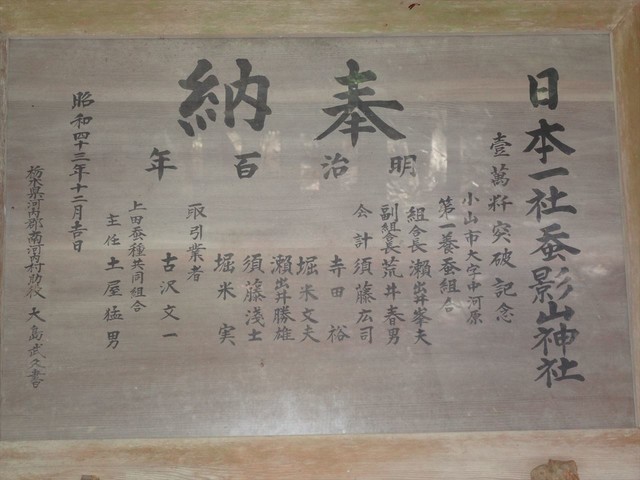 日本一社蚕影山神社
奉納
明治百年
壹萬粁突破記念
小山市大字中河原
第一養蚕組合
組合長 瀬出井峯夫
副組合長 荒井春男
会計 須藤広司
寺田裕
堀米文夫
瀬出井勝雄
須藤淺士
堀米実
取引業者
古沢文一
上田蚕種共同組合
主任 土屋猛男
昭和四十三年十二月吉日
栃木県河内郡南河内村 大島武久書